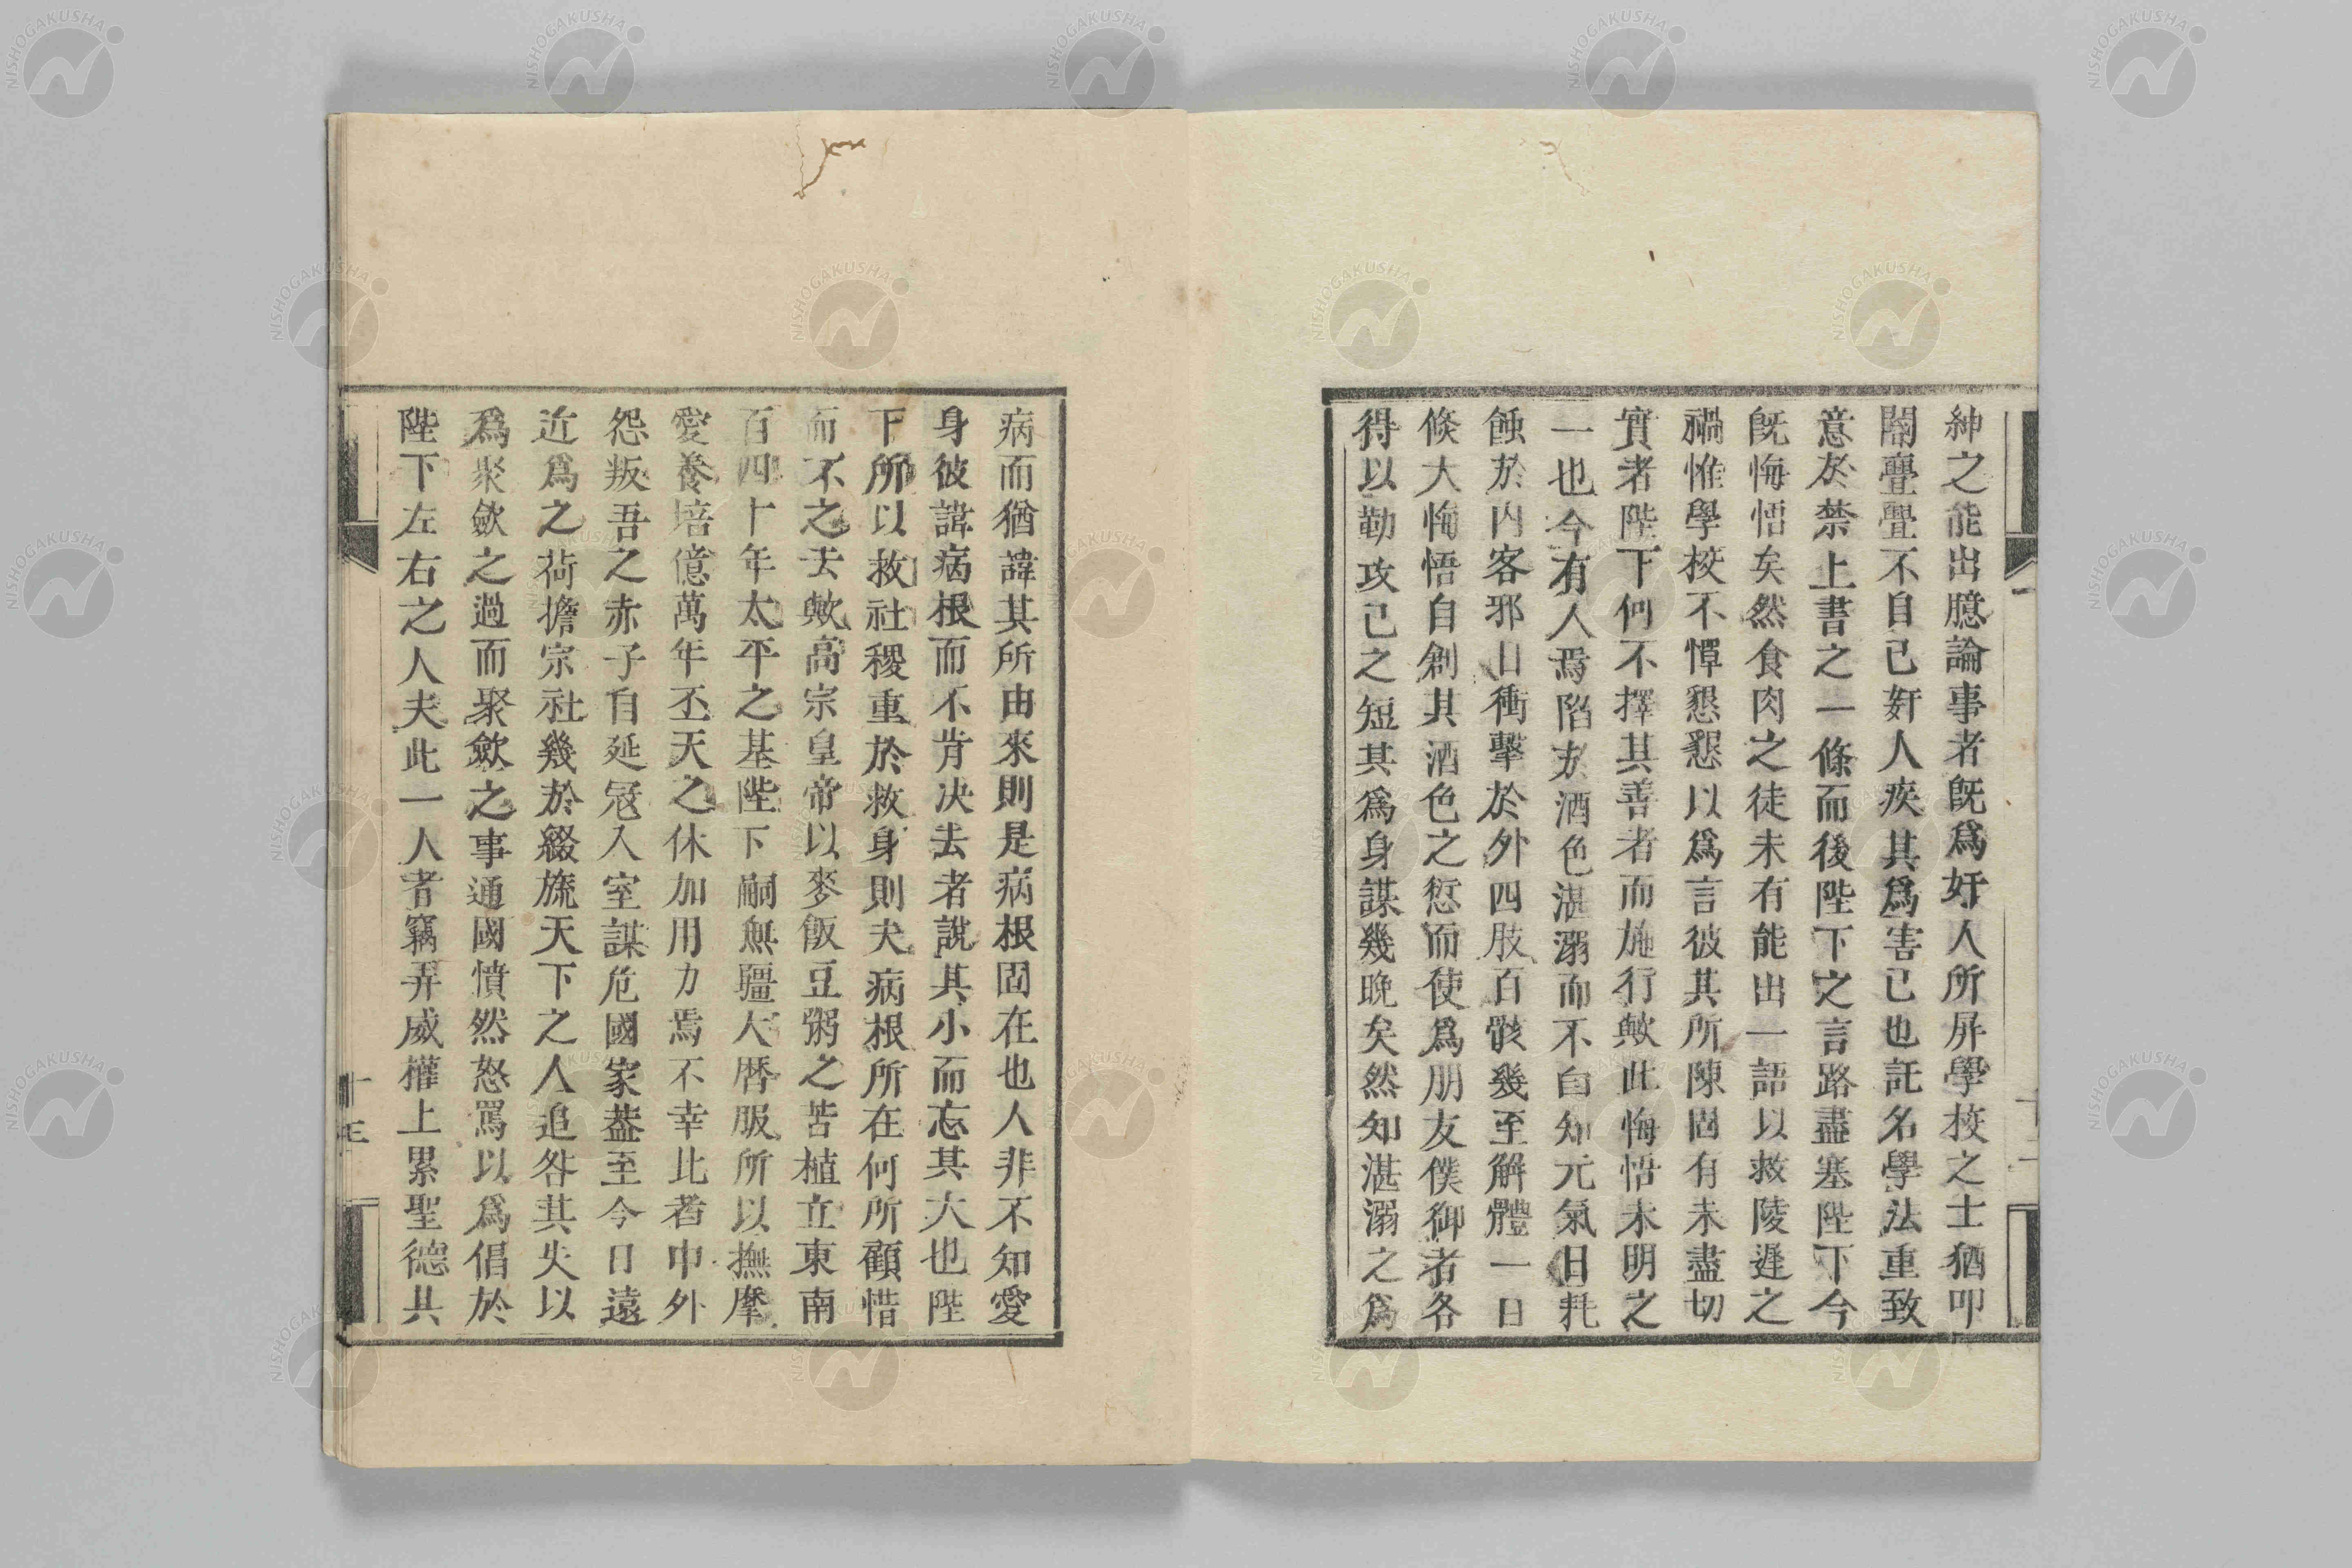 紳之能出臆論事者旣爲奸人所屏學校之士猶叩
閽亹亹不自已奸人疾其爲害己也託名學法重致
意於禁上書之一條而後陛下之言路盡塞陛下今
旣悔悟矣然食肉之徒未有能出一語以救陵遲之
禍惟學校不憚懇懇以爲言彼其所陳固有未盡切
實者陛下何不擇其善者而施行歟此悔悟未明之
一也今有人焉陷於酒色湛溺而不自知元氣日耗
蝕於内客邪日衝擊於外四肢百骸幾至解體一日
倐大悔悟自創其酒色之愆而使爲朋友僕御者各
得以勒攻己之短其爲身謀幾晚矣然知湛溺之爲
病而猶諱其所由來則是病根固在也人非不知愛
身彼諱病根而不肯决去者說其小而忘其大也陛
下所以救社稷重於救身則夫病根所在何所顧惜
而不之去歟高宗皇帝以麥飯豆粥之苦植立東南
百四十年太平之基陛下嗣無疆大曆服所以撫摩
愛養培億萬年丕天之休加用力焉不幸比者中外
怨叛吾之赤子自延宼入室謀危國家葢至今日遠
近爲之荷擔宗社幾於綴旒天下之人追咎其失以
爲聚歛之過而聚歛之事通國憤然怒罵以爲倡於
陛下左右之人夫此一人者竊弄威權上累聖德具
十三
NISHOGAKUSHA